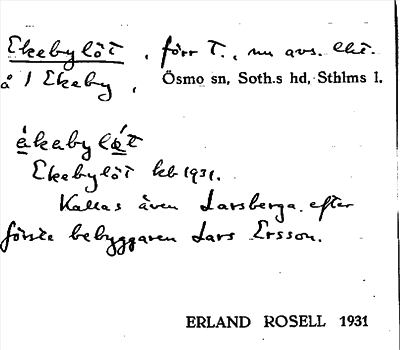 Ekebylöt, förr T., nu avs. lht.
å 1 Ekeby, Ösmo sn, Soth.s hd, Sthlms l.
ekabylöt
Ekebylöt kb 1931.
Kallas även Larsberga efter
förste bebyggaren Lars Ersson.
ERLAND ROSELL 1931